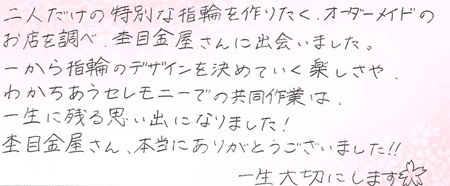 二人だけの特別な指輪を作りたく、オーダーメイドの
お店を調べ、杢目金屋さんに出会いました。
一から指輪のデザインを決めていく楽しさや、
わかちあうセレモニーでの共同作業は、
一生に残る思い出になりました!
杢目金屋さん、本当にありがとうございました!!
一生大切にします